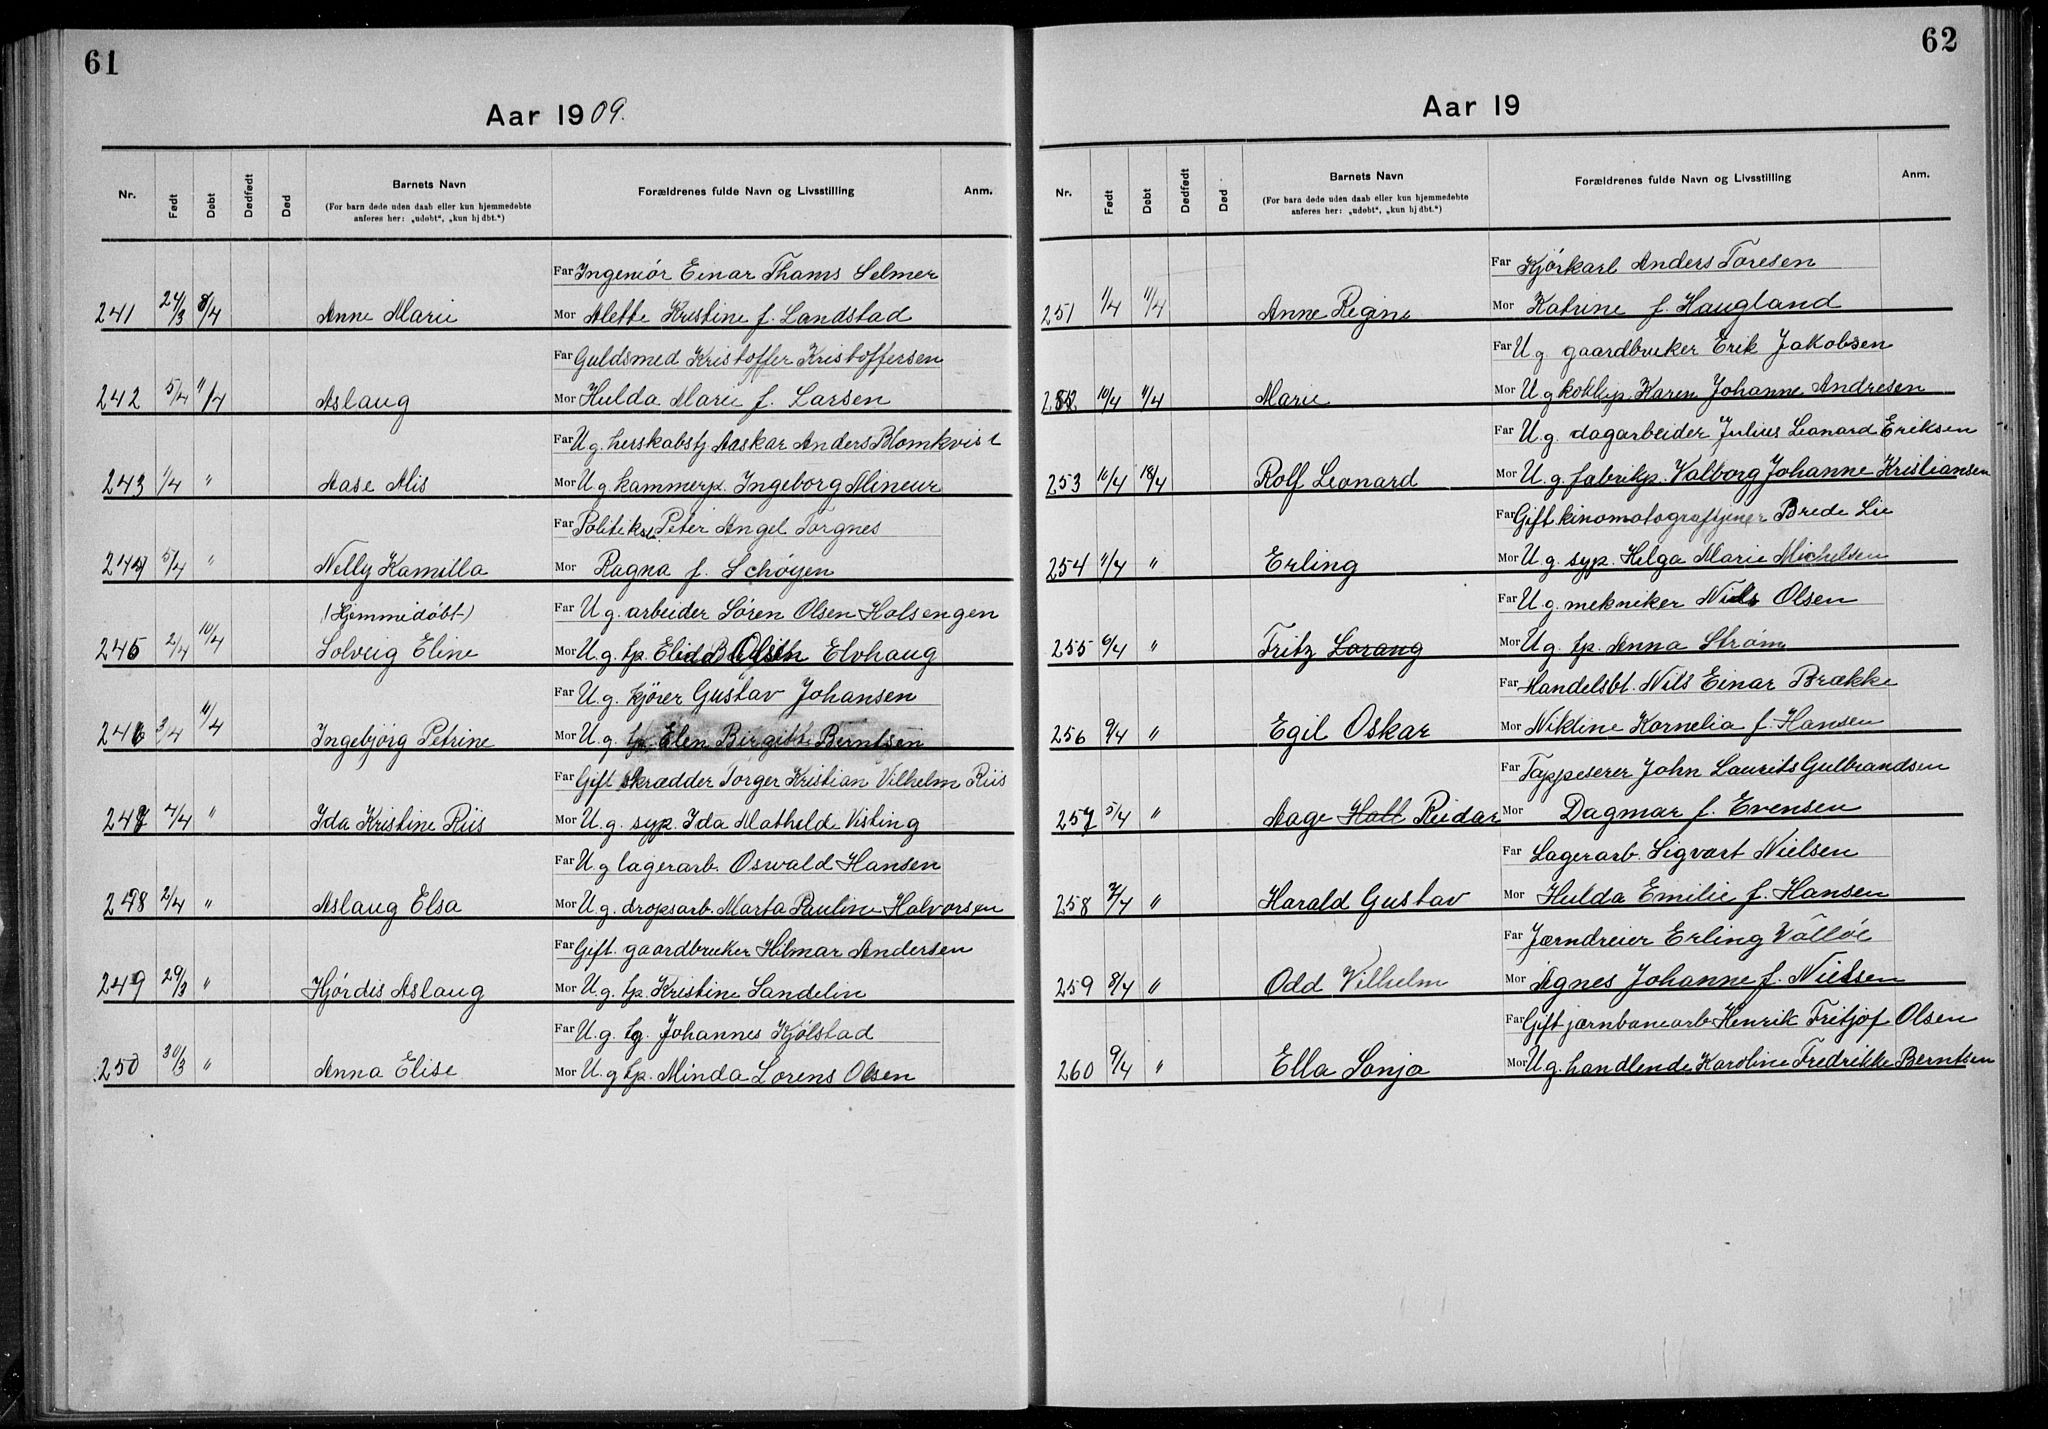 61
Aar 1909.
Nr. Født Døbt Dødfødt Død Barnets Navn Forældrenes fulde Navn og Livsstilling Anm.
(For barn døde uden daab eller kun hjemmedøbte
anføres her: „udøbt“, „kun hj dbt.“)
Far Ingeniør Einar Thams Selmer
241 24/3 8/4 Anne Marie Mor Alette Kristine f. Landstad
Far Guldsmed Kristoffer Kristoffersen
242 5/4 11/4 Aslaug Mor Hulda Marie f. Larsen
Far U.g. herskabstj Aaskar Anders Blomkvist
243 1/4 " Aase Alis Mor U.g. kammerp. Ingeborg Mineur
Far Politiks. Peter Angel Torgnes
244 5/4 " Nelly Kamilla Mor Ragna f. Schøyen
(Hjemmedøbt) Far U.g. arbeider Søren Olsen Holsengen
245 2/4 10/4 Solveig Eline Mor U.g. tp. Olsen Elvhaug
Far U.g. kjører Gustav Johansen
246 3/4 11/4 Ingebjørg Petrine Mor U.g. tp. Elen Birgitte Berntsen
Far Gift skrædder Torger Kristian Vilhelm Riis
247 4/4 " Ida Kristine Riis Mor U.g. syp. Ida Mathilde Visting
Far U.g lagerarb. Oswald Hansen
248 2/4 " Aslaug Elsa Mor U.g. dropsarb. Marta Pauline Halvorsen
Far Gift. gaardbruker Hilmar Andersen
249 29/3 " Hjørdis Aslaug Mor U.g. tp. Kristine Sandelin
Far U.g. tg. Johannes Kjølstad
250 30/3 " Anna Elise Mor U.g tp. Minda Lorens Olsen
62
Aar 19
Nr. Født Døbt Dødfødt Død Barnets Navn Forældrenes fulde Navn og Livsstilling Anm.
(For barn døde uden daab eller kun hjemmedøbte
anføres her: „udøbt“, „kun hj dbt.“)
Far Kjørkarl Anders Toresen
251 1/4 11/4 Anne Regine Mor Katrine f. Haugland
Far U g. gaardbruker Erik Jakobsen
252 10/4 11/4 Marie Mor U.g kokkep. Karen Johanne Andresen
Far U.g. dagarbeider Julius Leonard Eriksen
253 10/4 18/4 Rolf Leonard Mor U.g. fabrikp. Valborg Johanne Kristiansen
Far Gift kinomatograftjener Brede Lie
254 11/4 " Erling Mor U.g. syp. Helga Marie Michelsen
Far U.g. mekniker Nils Olsen
255 6/4 " Fritz Lorang Mor U.g. tp. Anna Strøm
Far Handelsbt. Nils Einar Brække
256 9/4 " Egil Oskar Mor Nikline Kornelia f. Hansen
Far Tappeserer John Laurits Gulbrandsen
257 5/4 " Aage Hall Reidar Mor Dagmar f. Evensen
Far Lagerarb. Sigvart Nielsen
258 7/4 " Harald Gustav Mor Hulda Emilie f. Hansen
Far Jærndreier Erling Valløe
259 8/4 " Odd Vilhelm Mor Agnes Johanne f. Nielsen
Far Gift jærnbanearb. Henrik Fritjof Olsen
260 9/4 " Ella Sonja Mor U.g. handlende Karoline Fredrikke Berntsen